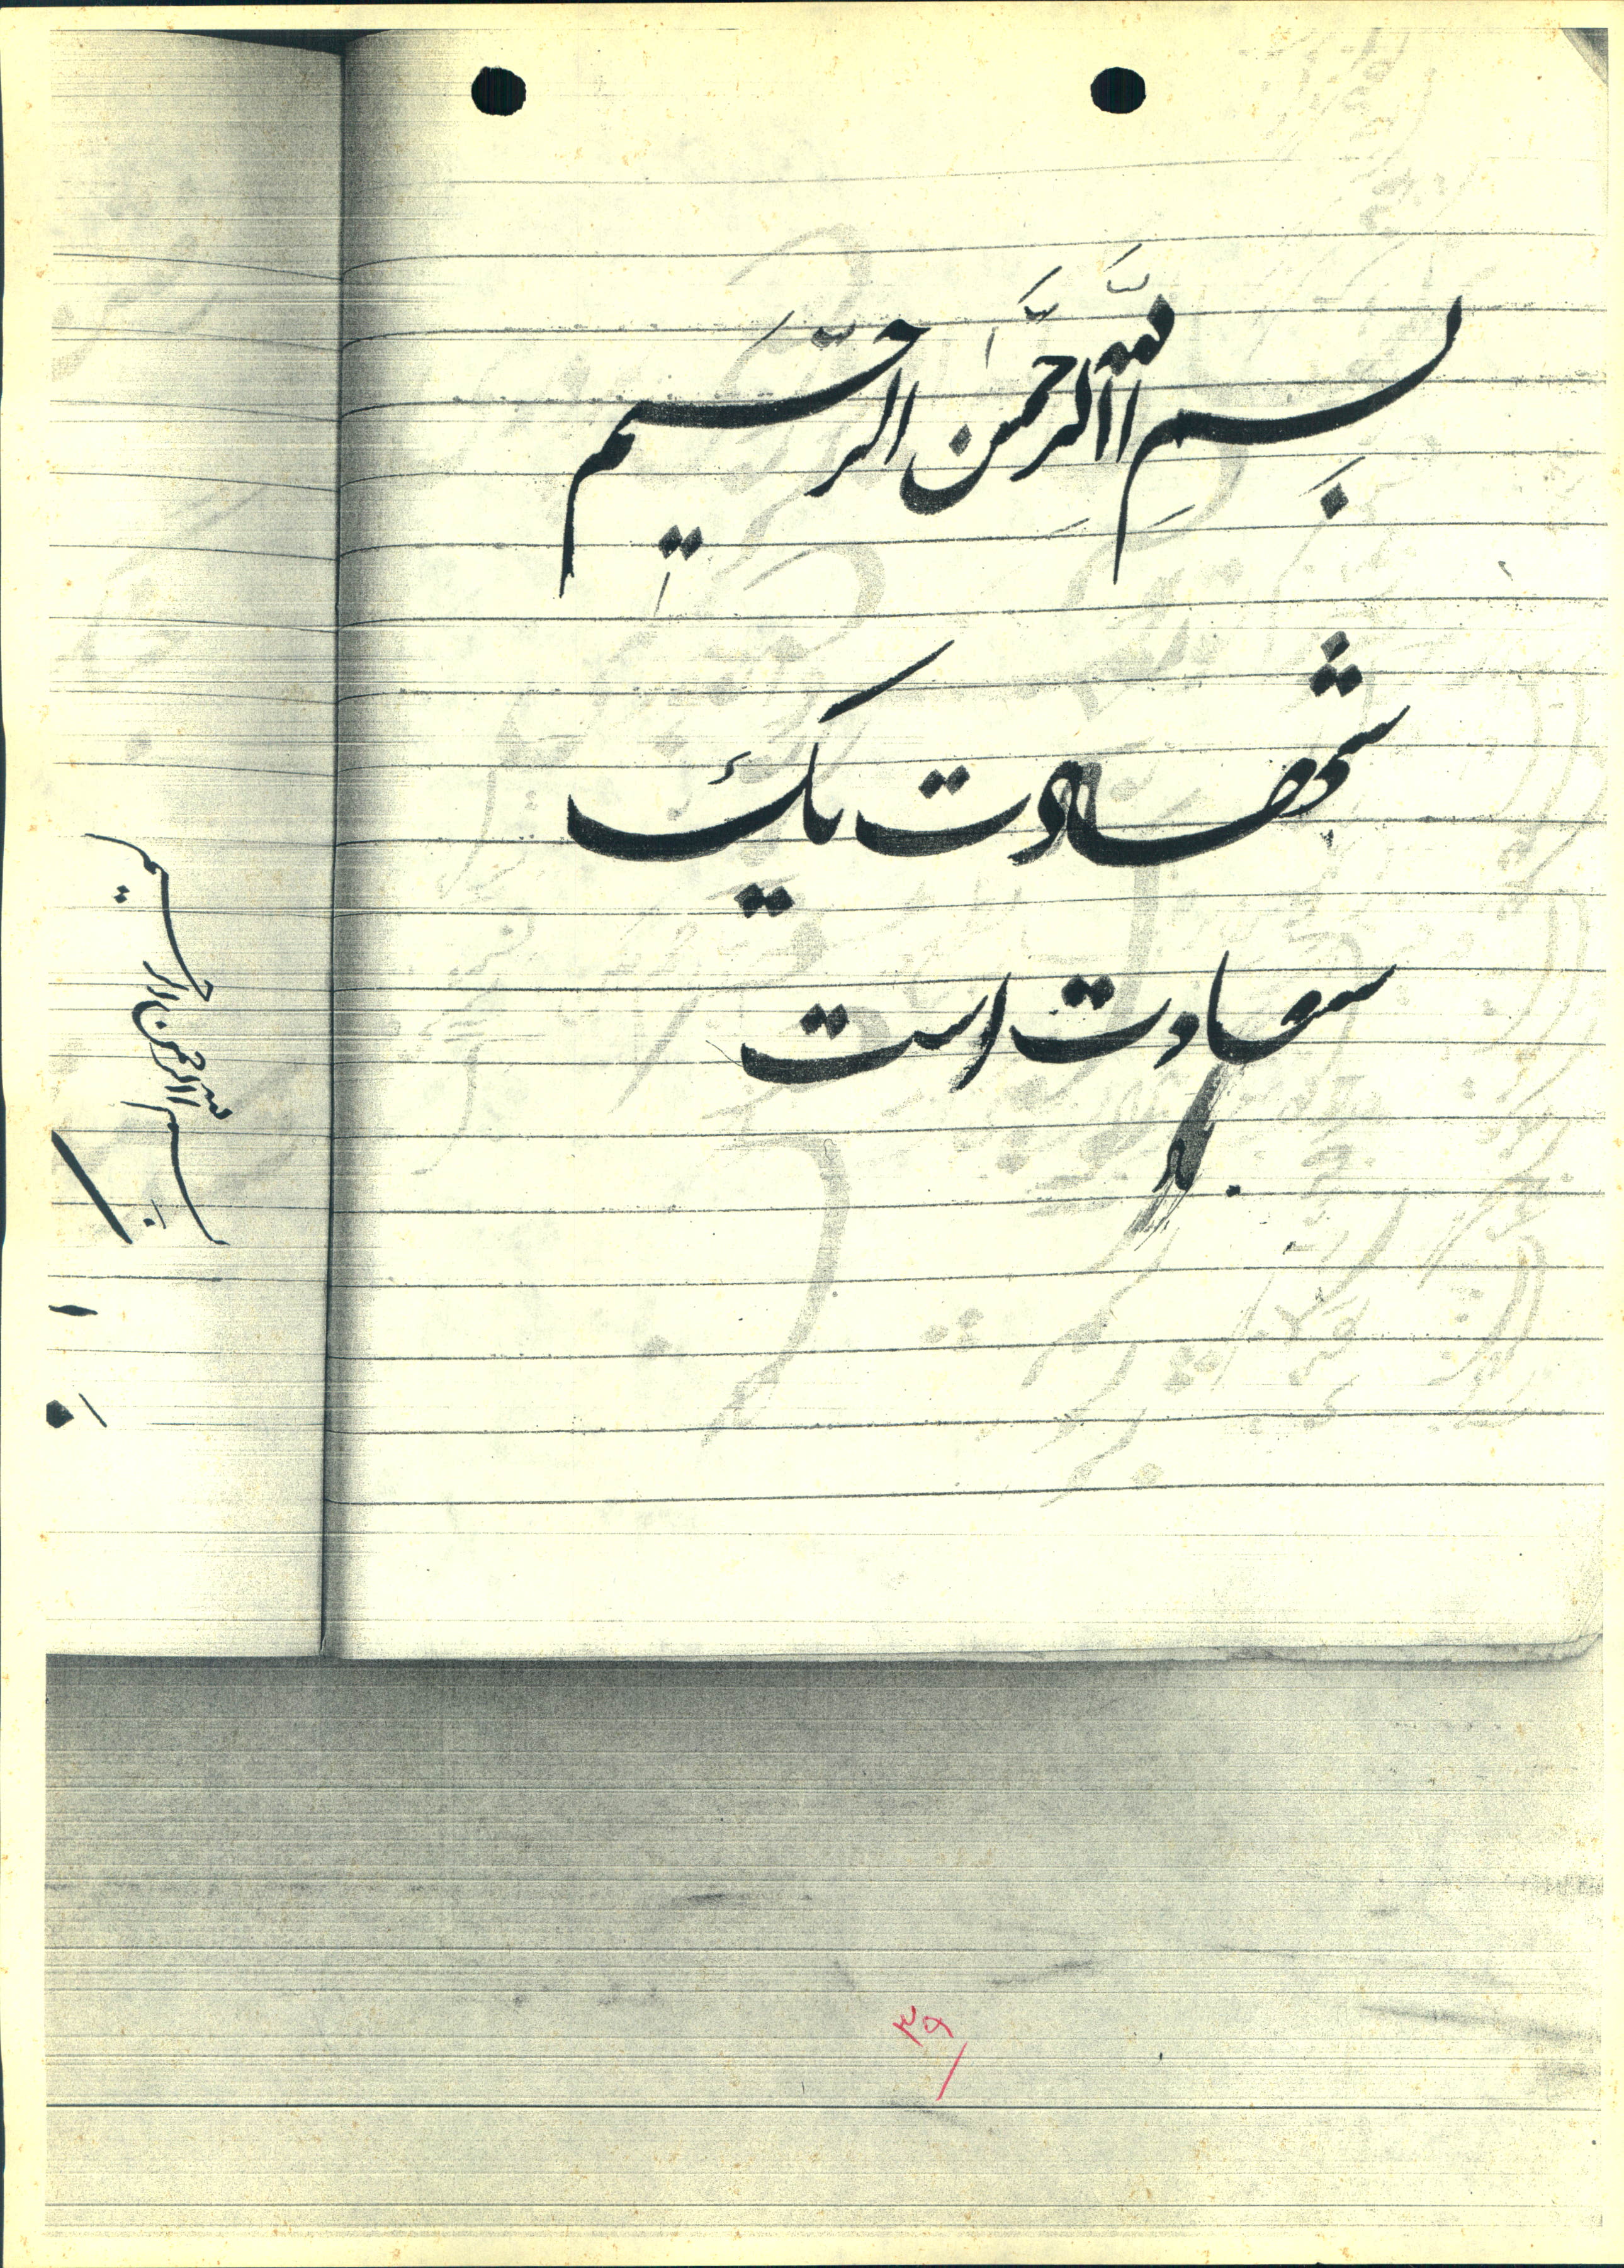 بِسمِ اللَّهِ الرَّحمَٰنِ الرَّحیِم
شهادت یک
سعادت است
بسم الله الرحمن الرحیم
۳۹